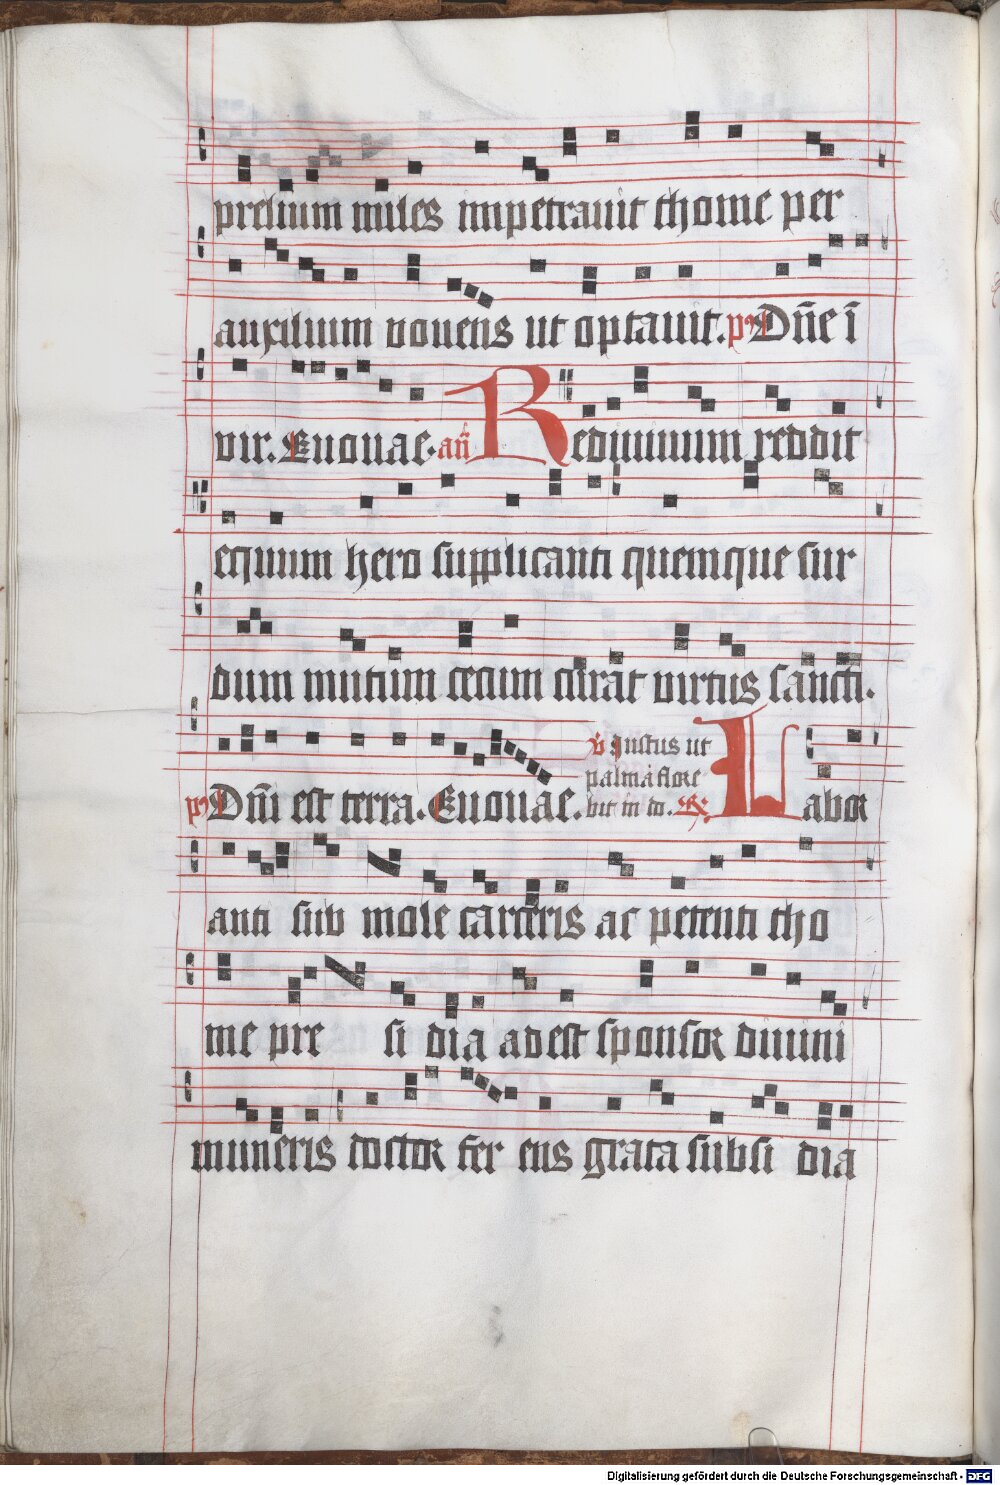 prelium miles impetrauit thome per
auxilium vouens ut optauit. ps Dn̄e ī
vir. Euouae. an̄ Rediuiuum reddit
equum hero supplicanti quemque sur
dum mutum cecum curat virtus sancti.
ps Dn̄i est terra. Euouae. v Iustus ut
palma flore
bit in do. R Labor
anti sub mole carceris ac petenti tho
me pre si dia adest sponsor diuini
muneris doctor fer ens grata subsi dia
Digitalisierung gefördert durch die Deutsche Forschungsgemeinschaft - DFG